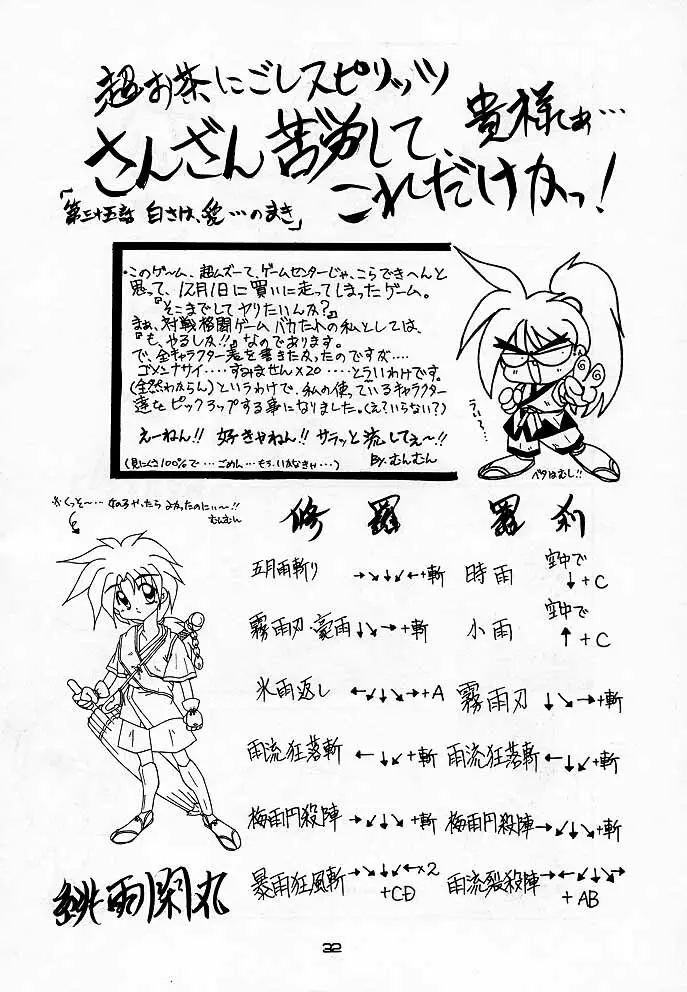 超お茶にごしスピリッツ
さんざん苦労して、
これだけかっ!
貴様しぁ…
「第三十五話 白さは、愛…のまき」
・このゲーム、超ムズーて、ゲームセンターじゃ、こらできへんと
思って、12月1日に買いに走ってしまったゲーム。
『そこまでして ヤリたいんか?』
まぁ、対戦格闘ゲーム バカたれの私としては、
『も、やるしか!!』なのであります。
で、全キャラクター表を書きたかったのですが‥‥
ゴメンナサイ‥‥すみません×20 ‥‥というわけです。
(全然わからん)というわけで、私の使っているキャラクター
達をピックアップする事になりました。(え?いらない?)
えーねん!! 好きやねん!! サラッと流してぇ〜!!
(見にくさ100%で‥‥ごめん‥‥もう、いかなきゃ‥‥)
By.むんむん
うぃ〜…
ベタはむし!!
※くっそ〜‥‥ 女のろやったら よかったのにぃ〜!!
むんむん
修 羅
羅 刹
五月雨斬り →↘↓↙←+斬
時雨 空中で ↓+C
霧雨刃・豪雨 ↓↘→+斬
小雨 空中で ↑+C
氷雨返し ←↙↓↘→+A
霧雨刃 ↓↘→+斬
雨流狂落斬 ←↓↙+斬
雨流狂落斬 ←↓↙+斬
梅雨円殺陣 →↙↓↘+斬
梅雨円殺陣 →↙↓↘+斬
暴雨狂風斬 →↘↓↙←×2 +CD
雨流裂殺陣 →←↙↓↘→ +AB
緋雨閑丸
32